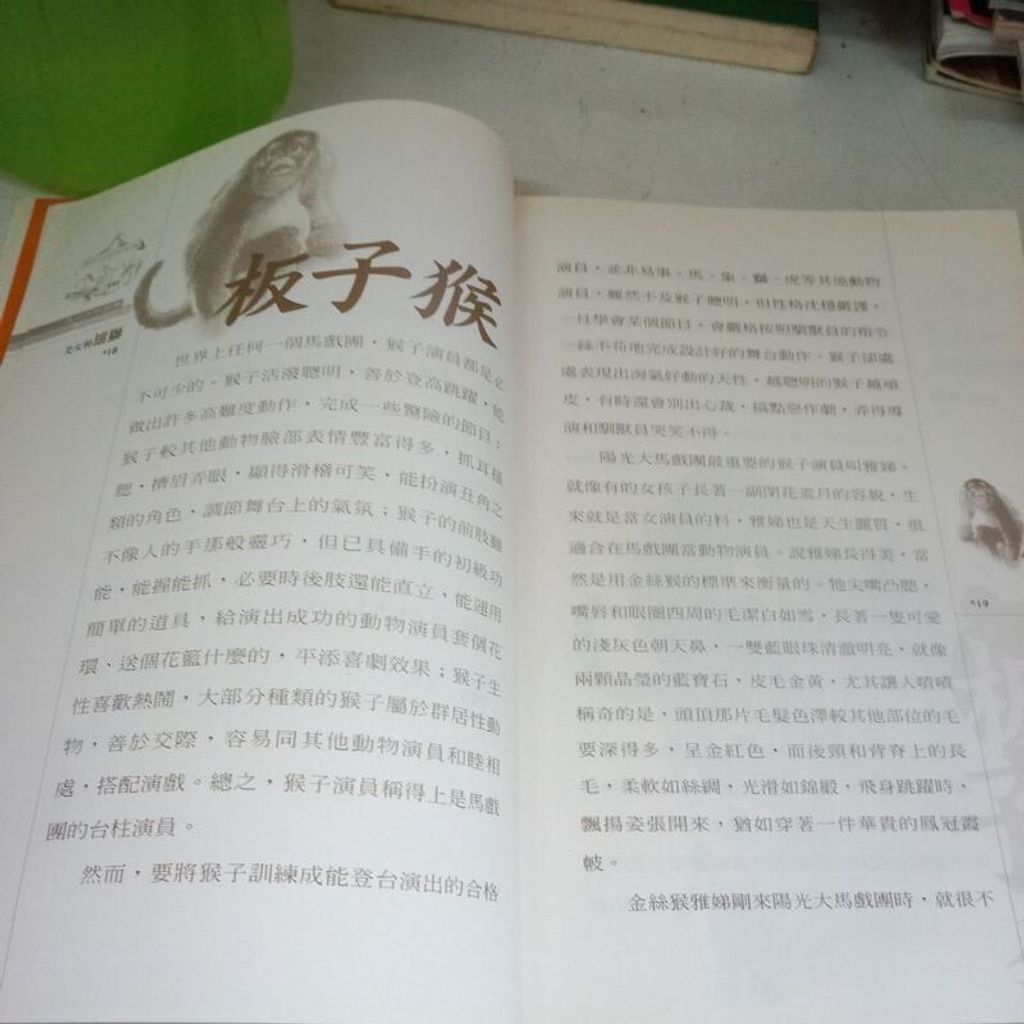 板子猴
雄獅
*18
世界上任何一個馬戲團，猴子演員都是必
不可少的。猴子活潑聰明，善於登高跳躍，能
做出許多高難度動作，完成一些驚險的節目；
猴子較其他動物臉部表情豐富得多，抓耳搔
腮，擠眉弄眼，顯得滑稽可笑，能扮演丑角之
類的角色，調節舞台上的氣氛；猴子的前肢雖
不像人的手那般靈巧，但已具備手的初級功
能，能握能抓，必要時後肢還能直立，能運用
簡單的道具，給演出成功的動物演員套個花
環、送個花籃什麼的，平添喜劇效果；猴子生
性喜歡熱鬧，大部分種類的猴子屬於群居性動
物，善於交際，容易同其他動物演員和睦相
處，搭配演戲。總之，猴子演員稱得上是馬戲
團的台柱演員。
然而，要將猴子訓練成能登台演出的合格
演員，並非易事。馬、象、獅、虎等其他動物
演員，雖然不及猴子聰明，但性格沈穩嚴謹，
一旦學會某個節目，會嚴格按照馴獸員的指令
一絲不苟地完成設計好的舞台動作。猴子卻處
處表現出淘氣好動的天性，越聰明的猴子越頑
皮，有時還會別出心裁，搞點惡作劇，弄得導
演和馴獸員哭笑不得。
陽光大馬戲團最重要的猴子演員叫雅娣。
就像有的女孩子長著一副閉花羞月的容貌，生
來就是當女演員的料，雅娣也是天生麗質，很
適合在馬戲團當動物演員。說雅娣長得美，當
然是用金絲猴的標準來衡量的。牠尖嘴凸腮，
嘴唇和眼圈四周的毛潔白如雪，長著一隻可愛
的淺灰色朝天鼻，一雙藍眼珠清澈明亮，就像
兩顆晶瑩的藍寶石，皮毛金黃，尤其讓人嘖嘖
稱奇的是，頭頂那片毛髮色澤較其他部位的毛
要深得多，呈金紅色，而後頸和背脊上的長
毛，柔軟如絲綢，光滑如錦緞，飛身跳躍時，
飄揚姿張開來，猶如穿著一件華貴的鳳冠霞
帔。
金絲猴雅娣剛來陽光大馬戲團時，就很不
*19